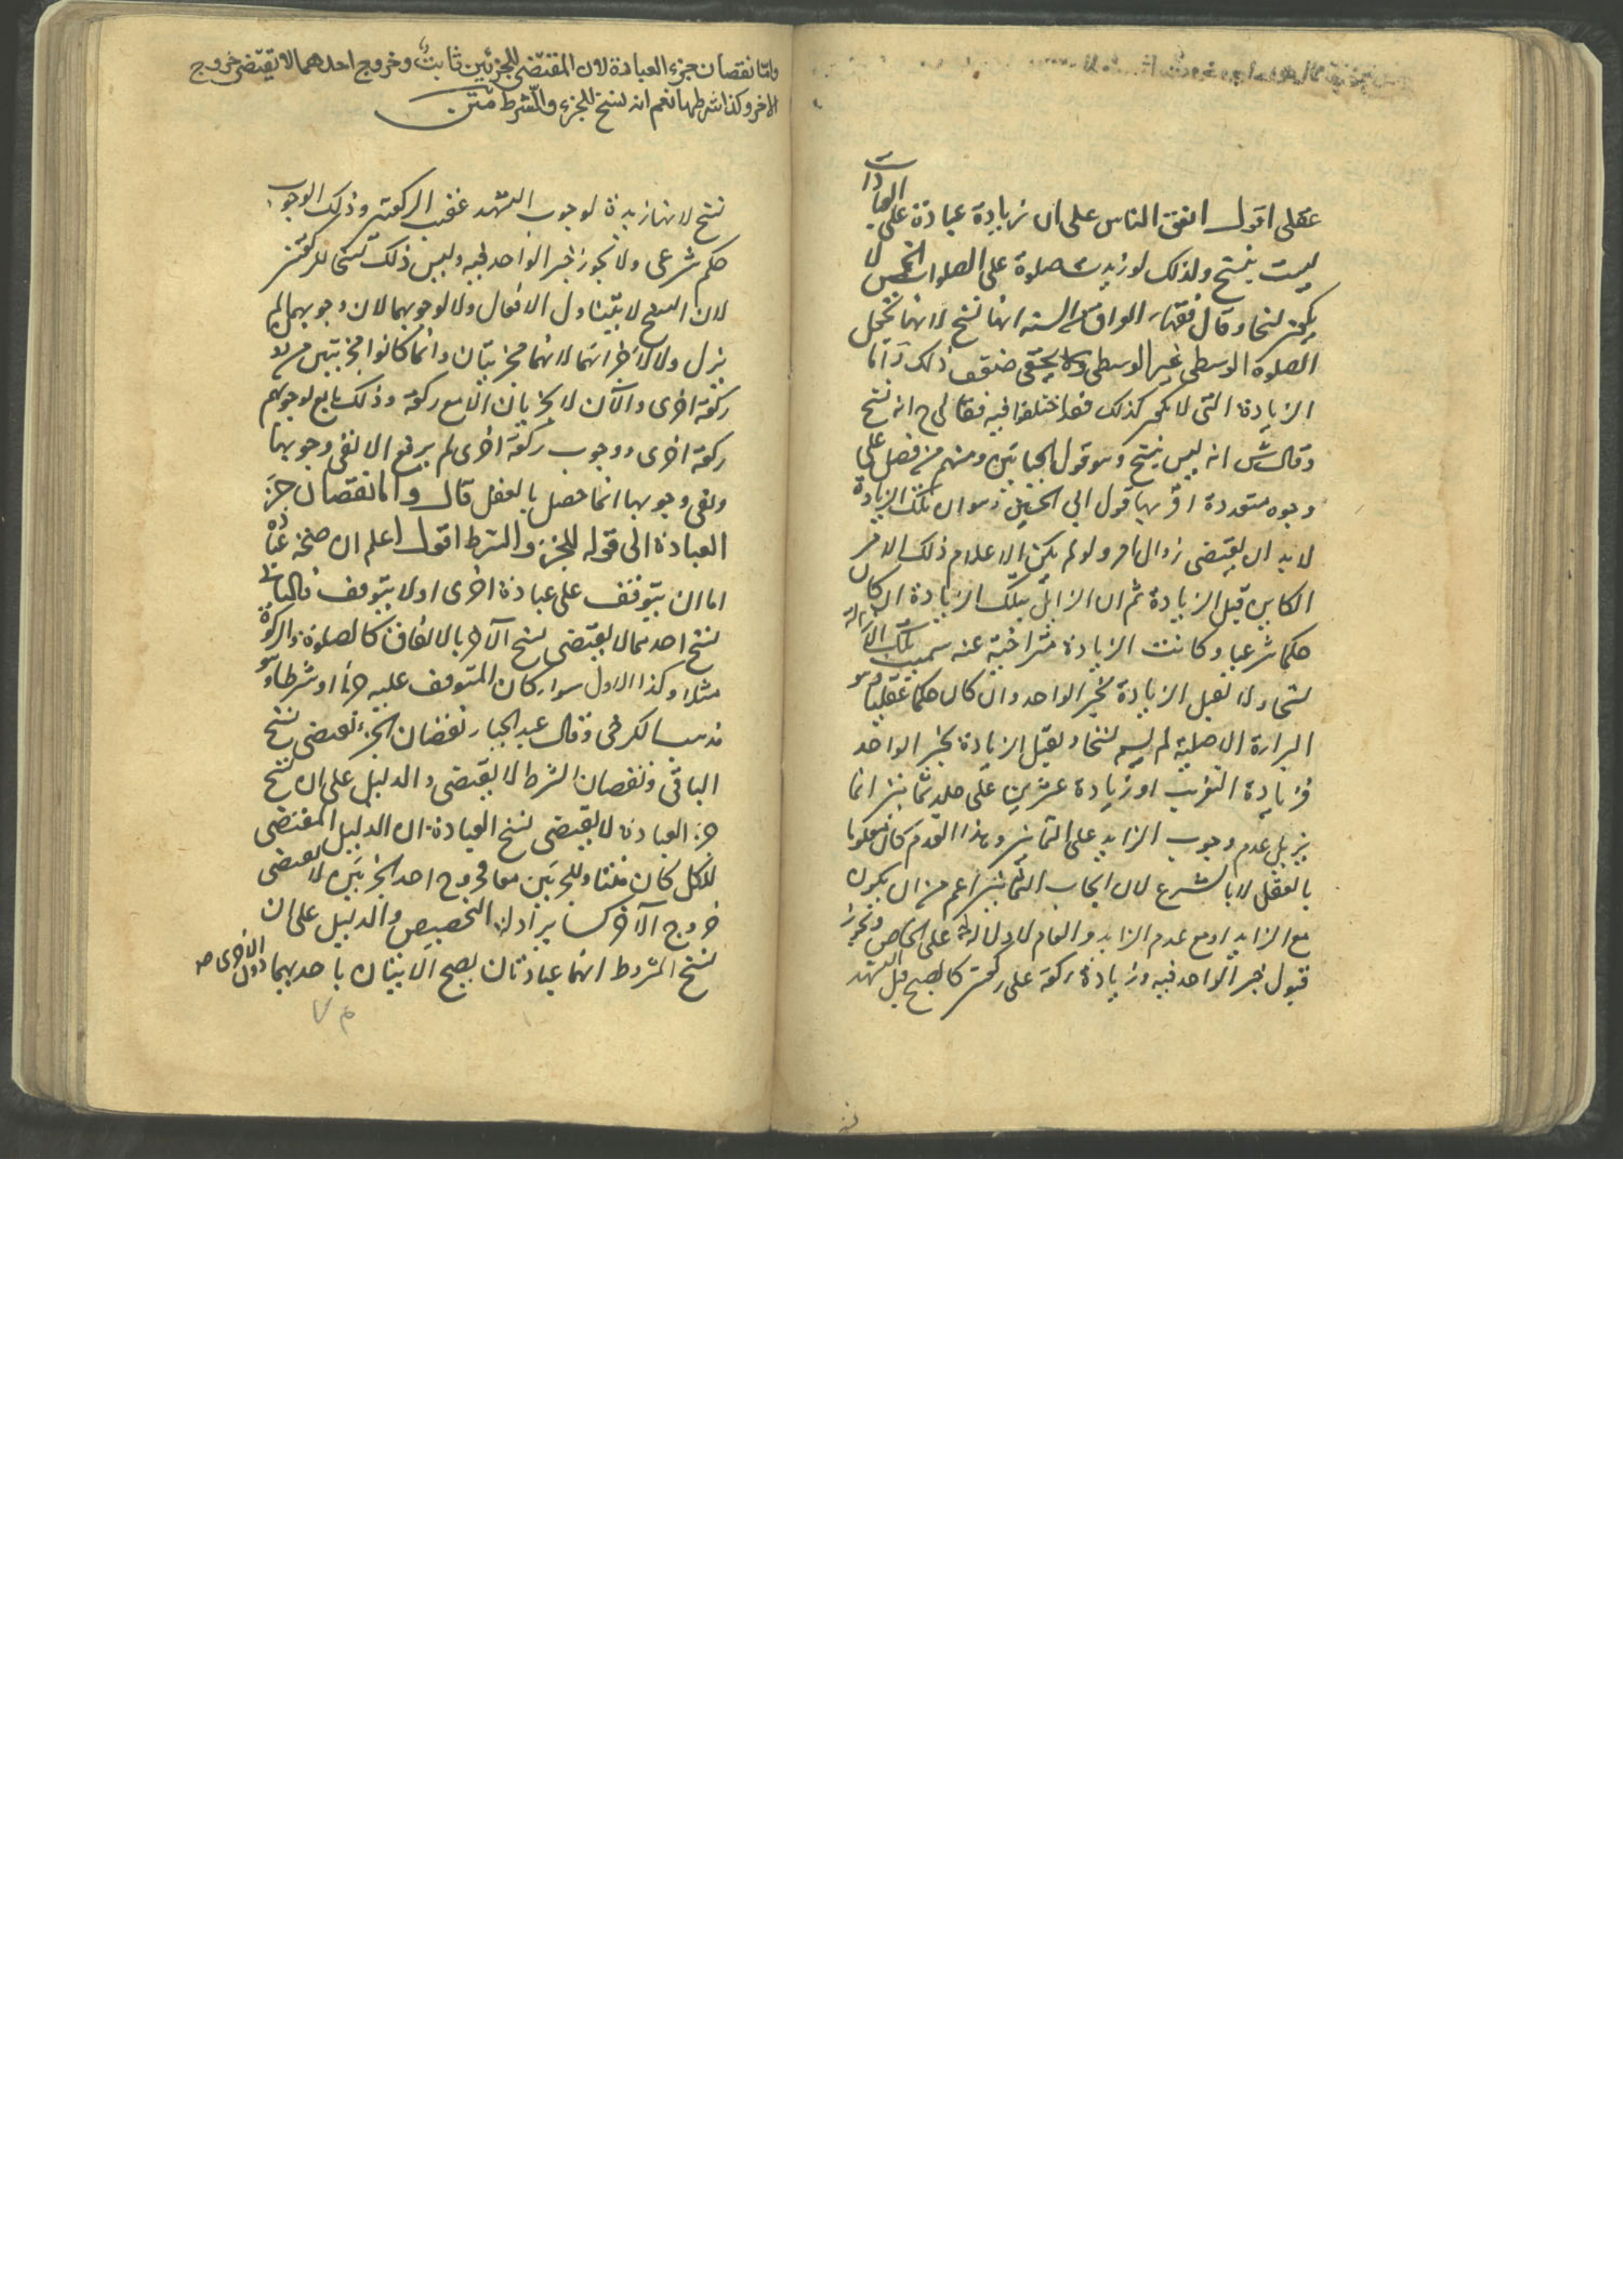 عقلى اقول اتفق الناس على ان زيادة عبادة على العبادات
ليست بنسخ ولذلك لو زيدت صلوة على الصلوات الخمس لا
يكون نسخا وقال فقهاء العراق السنه انها نسخ لانها تجعل
الصلوة الوسطى غير الوسطى ضعف ذلك واما
الزيادة التى لا كذلك فقد اختلفوا فيه فقال ح انه نسخ
وقال ش انه ليس بنسخ وهو قول الجبائيين ومنهم من فصل على
وجوه متعددة اقربها قول ابى الحسين وهو ان تلك الزيادة
لا بد ان يقتضى زوال امر ولو لم يكن الا عدم ذلك الامر
الكاين قبل الزيادة ثم ان الزايل بتلك الزيادة ان كان
حكما شرعيا وكانت الزيادة متراخية عنه سميت تلك الازالة
نسخا ولا تقبل الزيادة بخبر الواحد وان كان حكما عقليا وهو
البراءة الاصلية لم يسم نسخا وتقبل الزيادة بخبر الواحد
فزيادة التغريب او زيادة عشرين على جلد ثمانين انما
يزيل عدم وجوب الزايد على الثمانين وهذا العدم كان معلوما
بالعقل لا بالشرع لان ايجاب الثمانين اعم من ان يكون
مع الزايد او مع عدم الزايد والعام لا دلالة له على الخاص ويجوز
قبول خبر الواحد فيه وزيادة ركعة على ركعتين كالصبح قبل التشهد
وامّا نقصان جزء العبادة لان المقتضى للجزئين ثابت وخروج احدهما لا يقتضى خروج
الاخر وكذا شرطها نعم انه نسخ للجزء والشرط متن
نسخ لانها مزيدة لوجوب التشهد عقيب الركعتين وذلك الوجوب
حكم شرعى ولا يجوز خبر الواحد فيه وليس ذلك نسخا للركعتين
لان النسخ لا يتناول الافعال ولا لوجوبهما لان وجوبهما لم
يزل ولا لاجزائهما لانهما مجزيتان وانما كانوا مجزيتين من دون
ركعة اخرى والآن لا يجزيان الا مع ركعة وذلك تابع لوجوب
ركعة اخرى ووجوب ركعة اخرى لم يرفع الا نفى وجوبها
ونفى وجوبها انما حصل بالعقل قال واما نقصان جزء
العبادة الى قوله للجزء والشرط اقول اعلم ان صحة عبادة
اما ان يتوقف على عبادة اخرى او لا يتوقف فالثانى
نسخ احدهما لا يقتضى نسخ الآخر بالاتفاق كالصلوة والزكوة
مثلا وكذا الاول سواء كان المتوقف عليه جزءا او شرطا وهو
مذهب الكرخى وقال عبد الجبار نقصان الجزء يقتضى نسخ
الباقى ونقصان الشرط لا يقتضى والدليل على ان نسخ
جزء العبادة لا يقتضى نسخ العبادة ان الدليل المقتضى
للكل كان متناولا للجزئين معا فخروج احد الجزئين لا يقتضى
خروج الآخر كساير ادلة التخصيص والدليل على ان
نسخ المشروط انهما عبادتان يصح الاتيان باحديهما دون الاخرى